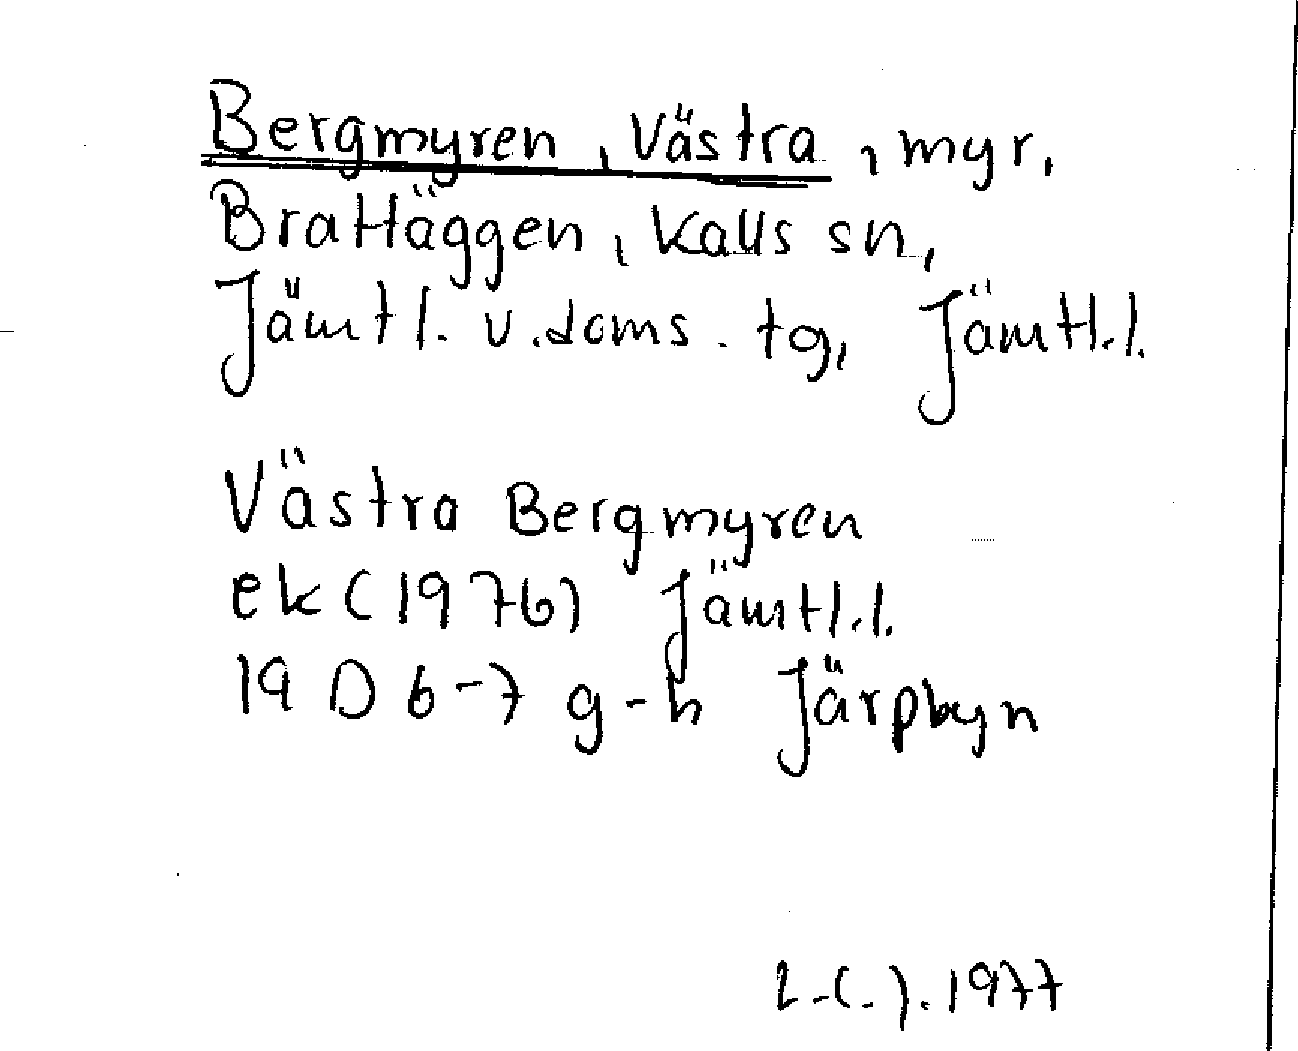 Bergmyren, Västra, myr,
Brattäggen, Kalls sn,
Jämtl. v.doms. tg, Jämtl.l.
Västra Bergmyren
ek (1976) Jämtl.l.
19 D 6-7 g-h Järpbyn
1977